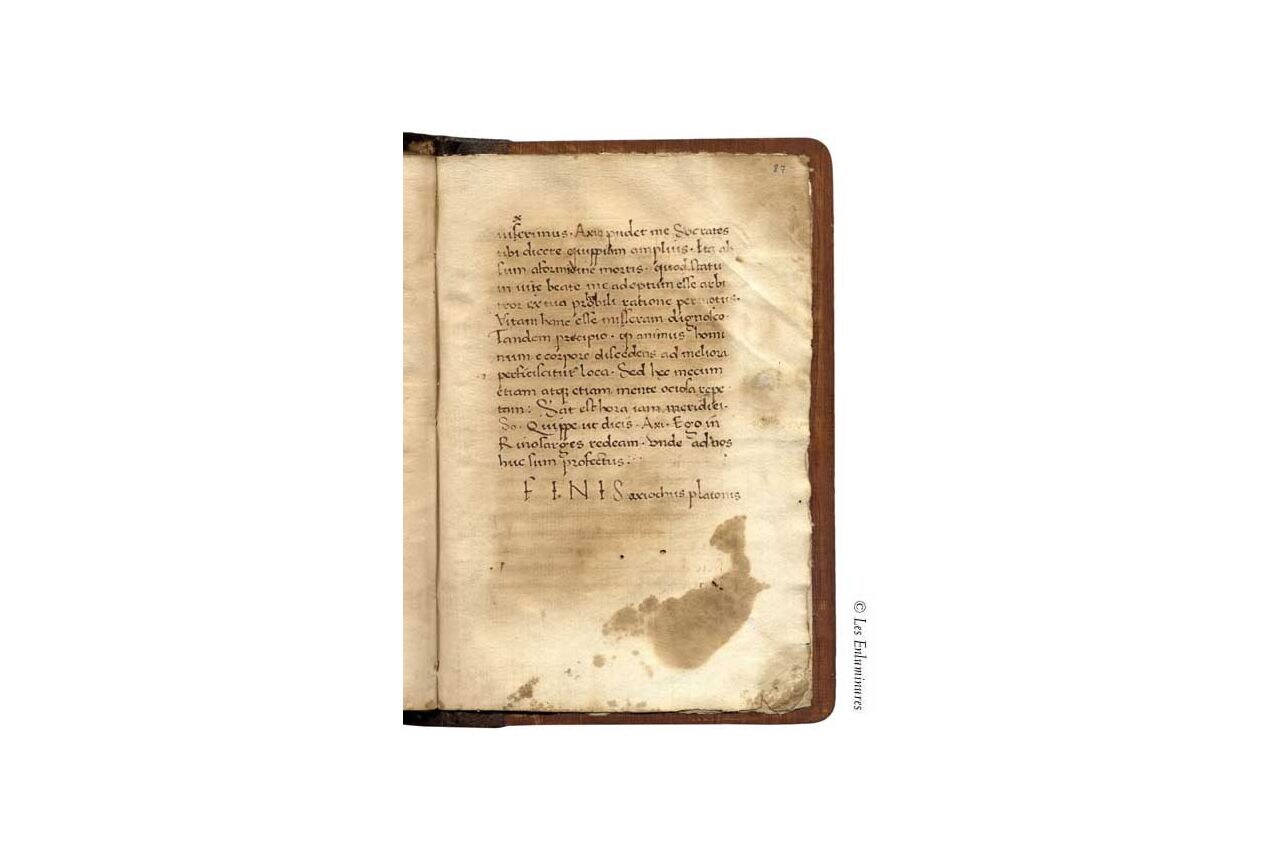 87
x
miserimus. Axio pudet me Socrates
tibi dicere quippiam amplius. Ita ab
sum a formidine mortis. quod statu
m vite beate me adeptum esse arbi
tror ex tua probabili ratione permotus.
Vitam hanc esse miseram dignosco.
Tandem precipio. ꝙ animus homi
num e corpore discedens ad meliora
perficiscitur loca. Sed hec mecum
etiam atqꝫ etiam mente ociosa repe
tam: Sat est hora iam meridiei.
So. Quippe ut dicis. Axi. Ego in
Kinosarges redeam. unde ad nos
huc sum profectus:
F I N I S axiochus platonis
© Les Enluminures